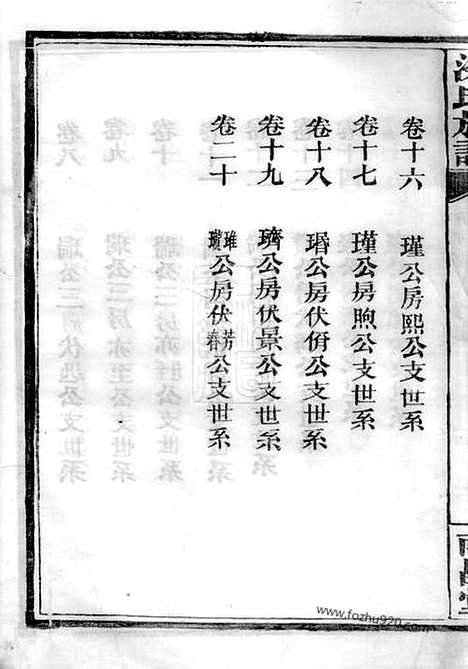 卷十六　瑾公房熙公支世系
卷十七　瑾公房煦公支世系
卷十八　瑉公房伏脩公支世系
卷十九　璾公房伏景公支世系
卷二十　琟瓏公房伏芳春公支世系
氏族譜
www.fozhu920.com